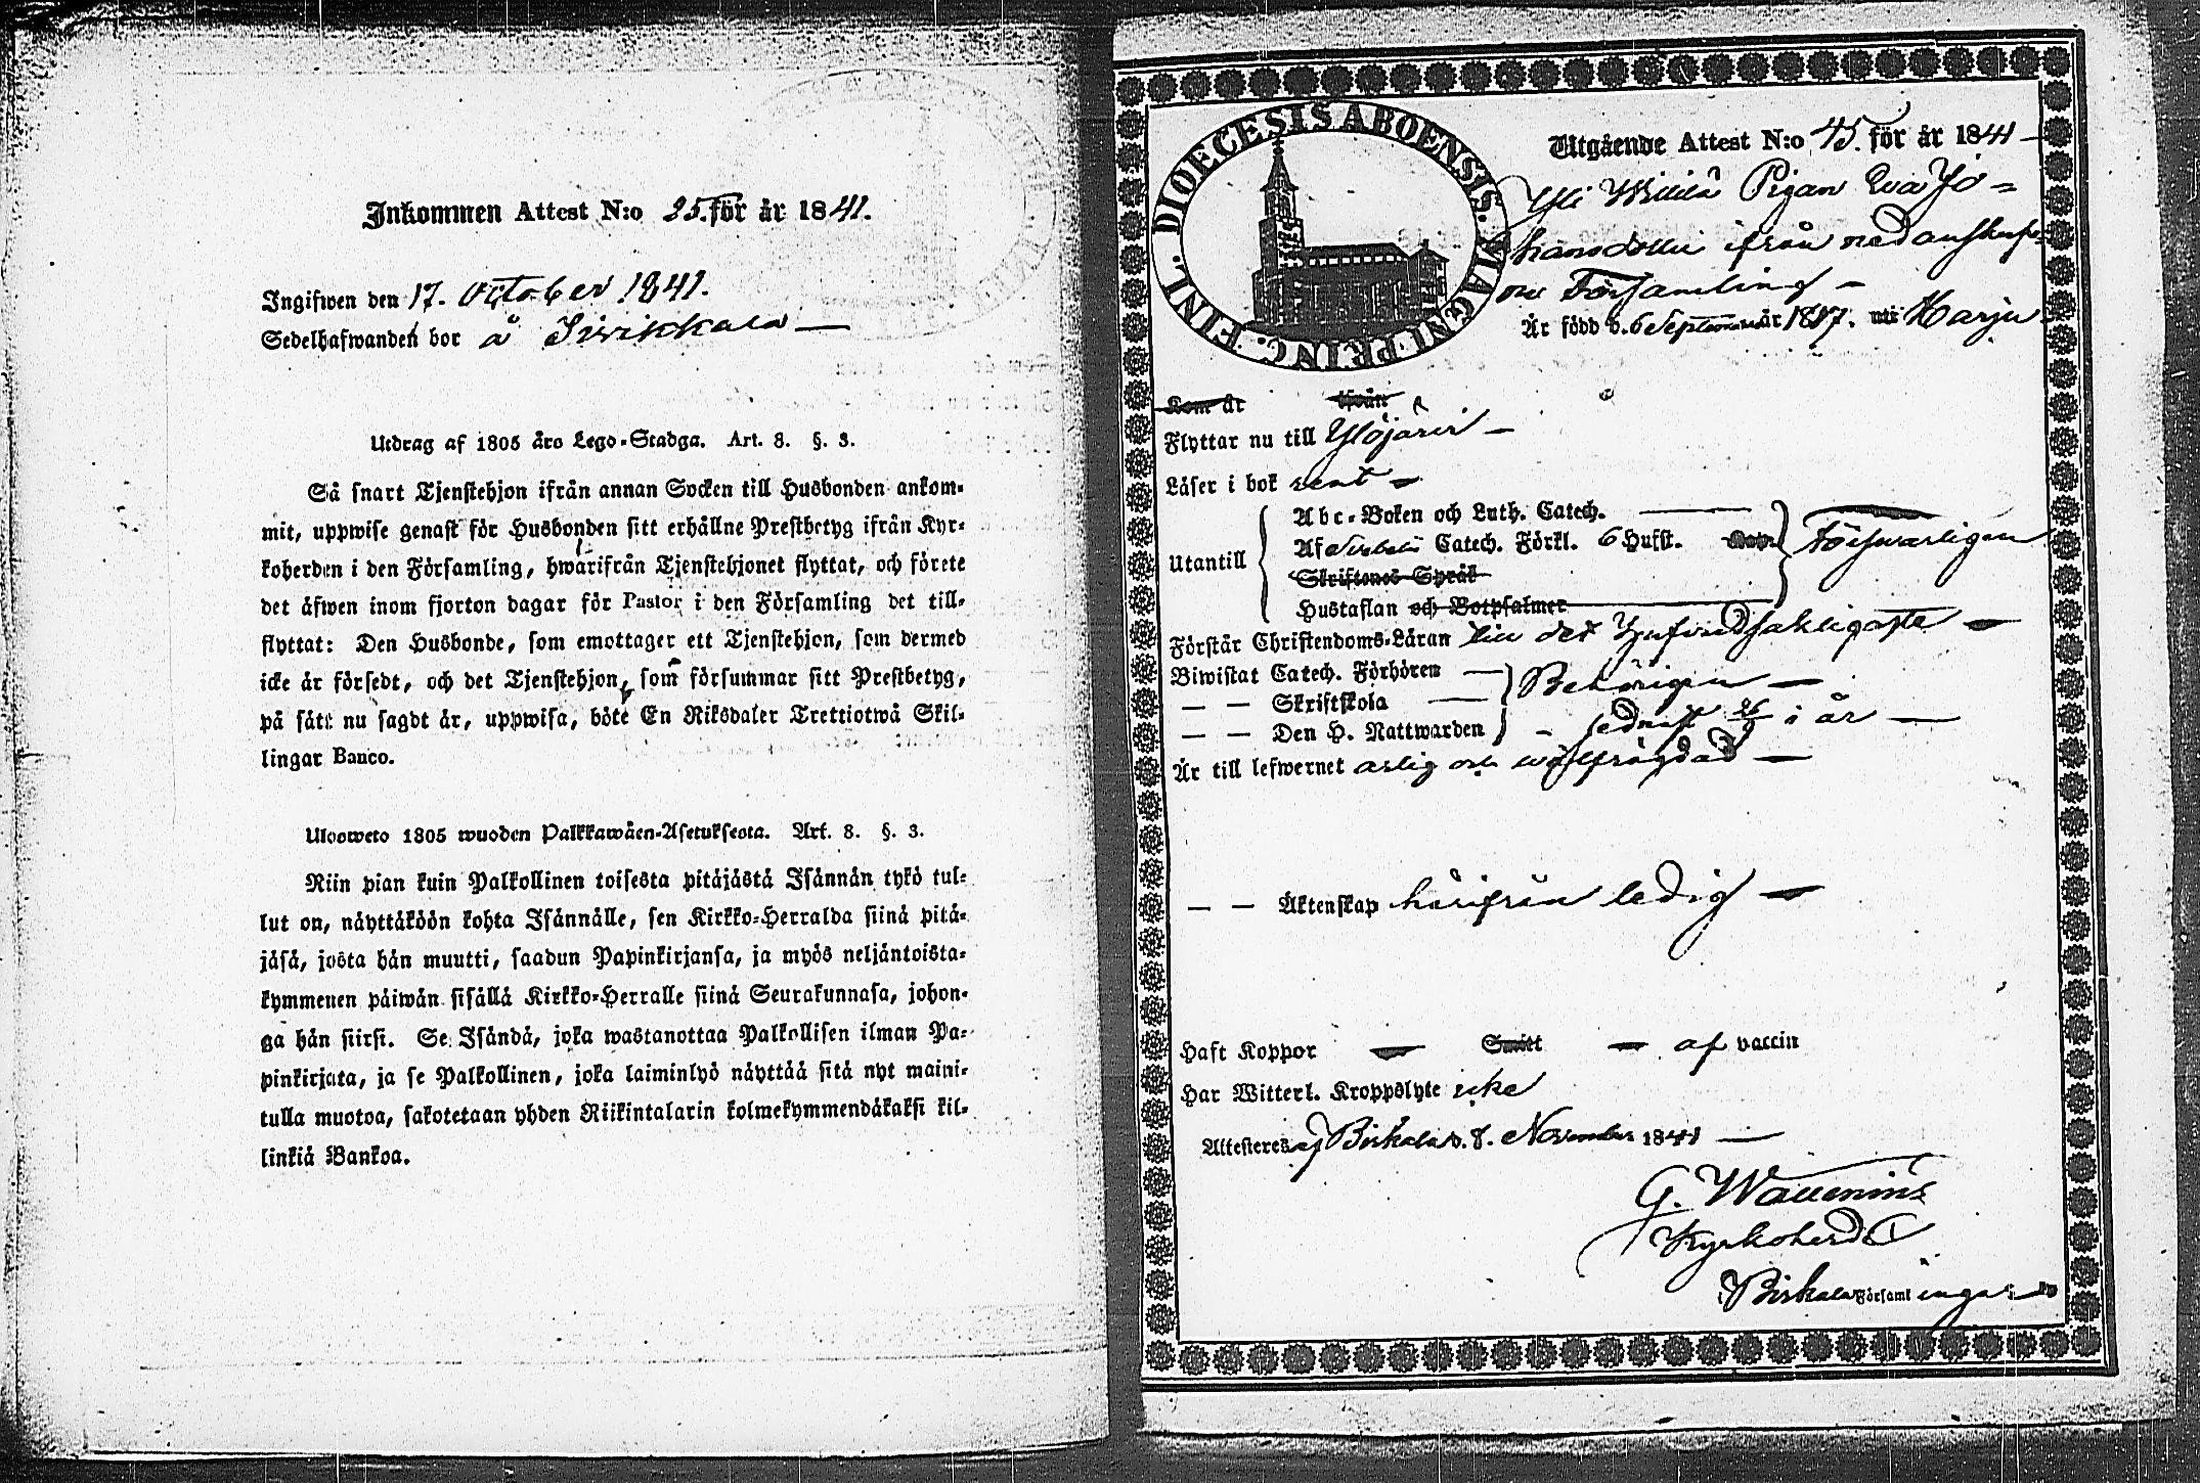 Inkommen Attest N:o 25. för år 1841.
Ingifwen den 17. October 1841.
Sedelhafwanden bor å Siwikkala —
Utdrag af 1805 års Lego-Stadga. Art. 8. §. 3.
Så snart Tjenstehjon ifrån annan Socken till Husbonden ankom-
mit, uppwise genast för Husbonden sitt erhållne Prestbetyg ifrån Kyr-
koherden i den Församling, hwarifrån Tjenstehjonet flyttat, och förete
det åfwen inom fjorton dagar för Pastor i den Församling det till-
flyttat: Den Husbonde, som emottager ett Tjenstehjon, som dermed
icke är försedt, och det Tjenstehjon, som försummar sitt Prestbetyg,
på sätt nu sagdt är, uppwisa, böte En Riksdaler Trettiotwå Skil-
lingar Banco.
Ulosweto 1805 wuoden Palkkawäen-Asetuksesta. Art. 8. §. 3.
Niin pian kuin Palkollinen toisesta pitäjästä Isännän tykö tul-
lut on, näyttäköön kohta Isännälle, sen Kirkko-Herralda siinä pitä-
jäsä, josta hän muutti, saadun Papinkirjansa, ja myös neljäntoista-
kymmenen päiwän sisällä Kirkko-Herralle siinä Seurakunnasa, johon-
ga hän siirsi. Se Isändä, joka wastanottaa Palkollisen ilman Pa-
pinkirjata, ja se Palkollinen, joka laiminlyö näyttää sitä nyt maini-
tulla muotoa, sakotetaan yhden Riikintalarin kolmekymmendäkaksi kil-
linkiä Bankoa.
DIOECESIS ABOENSIS. MAGNI PRINC. FINL.
Utgående Attest N:o 45. för år 1841 —
Yli Willilä Pigan Eva Jo-
hansdotter ifrån nedanskrif-
ne Församling —
Är född d. 6 September år 1817. uti Harju
Kom år ifrån
Flyttar nu till Ylöjärvi —
Läser i bok rent —
Utantill
Abc-Boken och Luth. Catech.
Af Svebelii Catech. Förkl. 6 Hufst. Försvarligen
Skriftenes Språk
Hustaflan och Botpsalmer
Förstår Christendoms-Läran till det Hufvudsakligaste —
Biwistat Catech. Förhören — Behörigen —
— — Skriftskola —
— — Den H. Nattwarden — sednast 26/9 i år —
Är till lefwernet ärlig och wälfrägdad —
— — Äktenskap härifrån ledig —
Haft Koppor — Smitt — af vaccin
Har Witterl. Kroppslyte icke
Attesteres af Birkala d. 8. November 1841 —
G. Wallenius
Kyrkoherde i
Birkala Församlingar